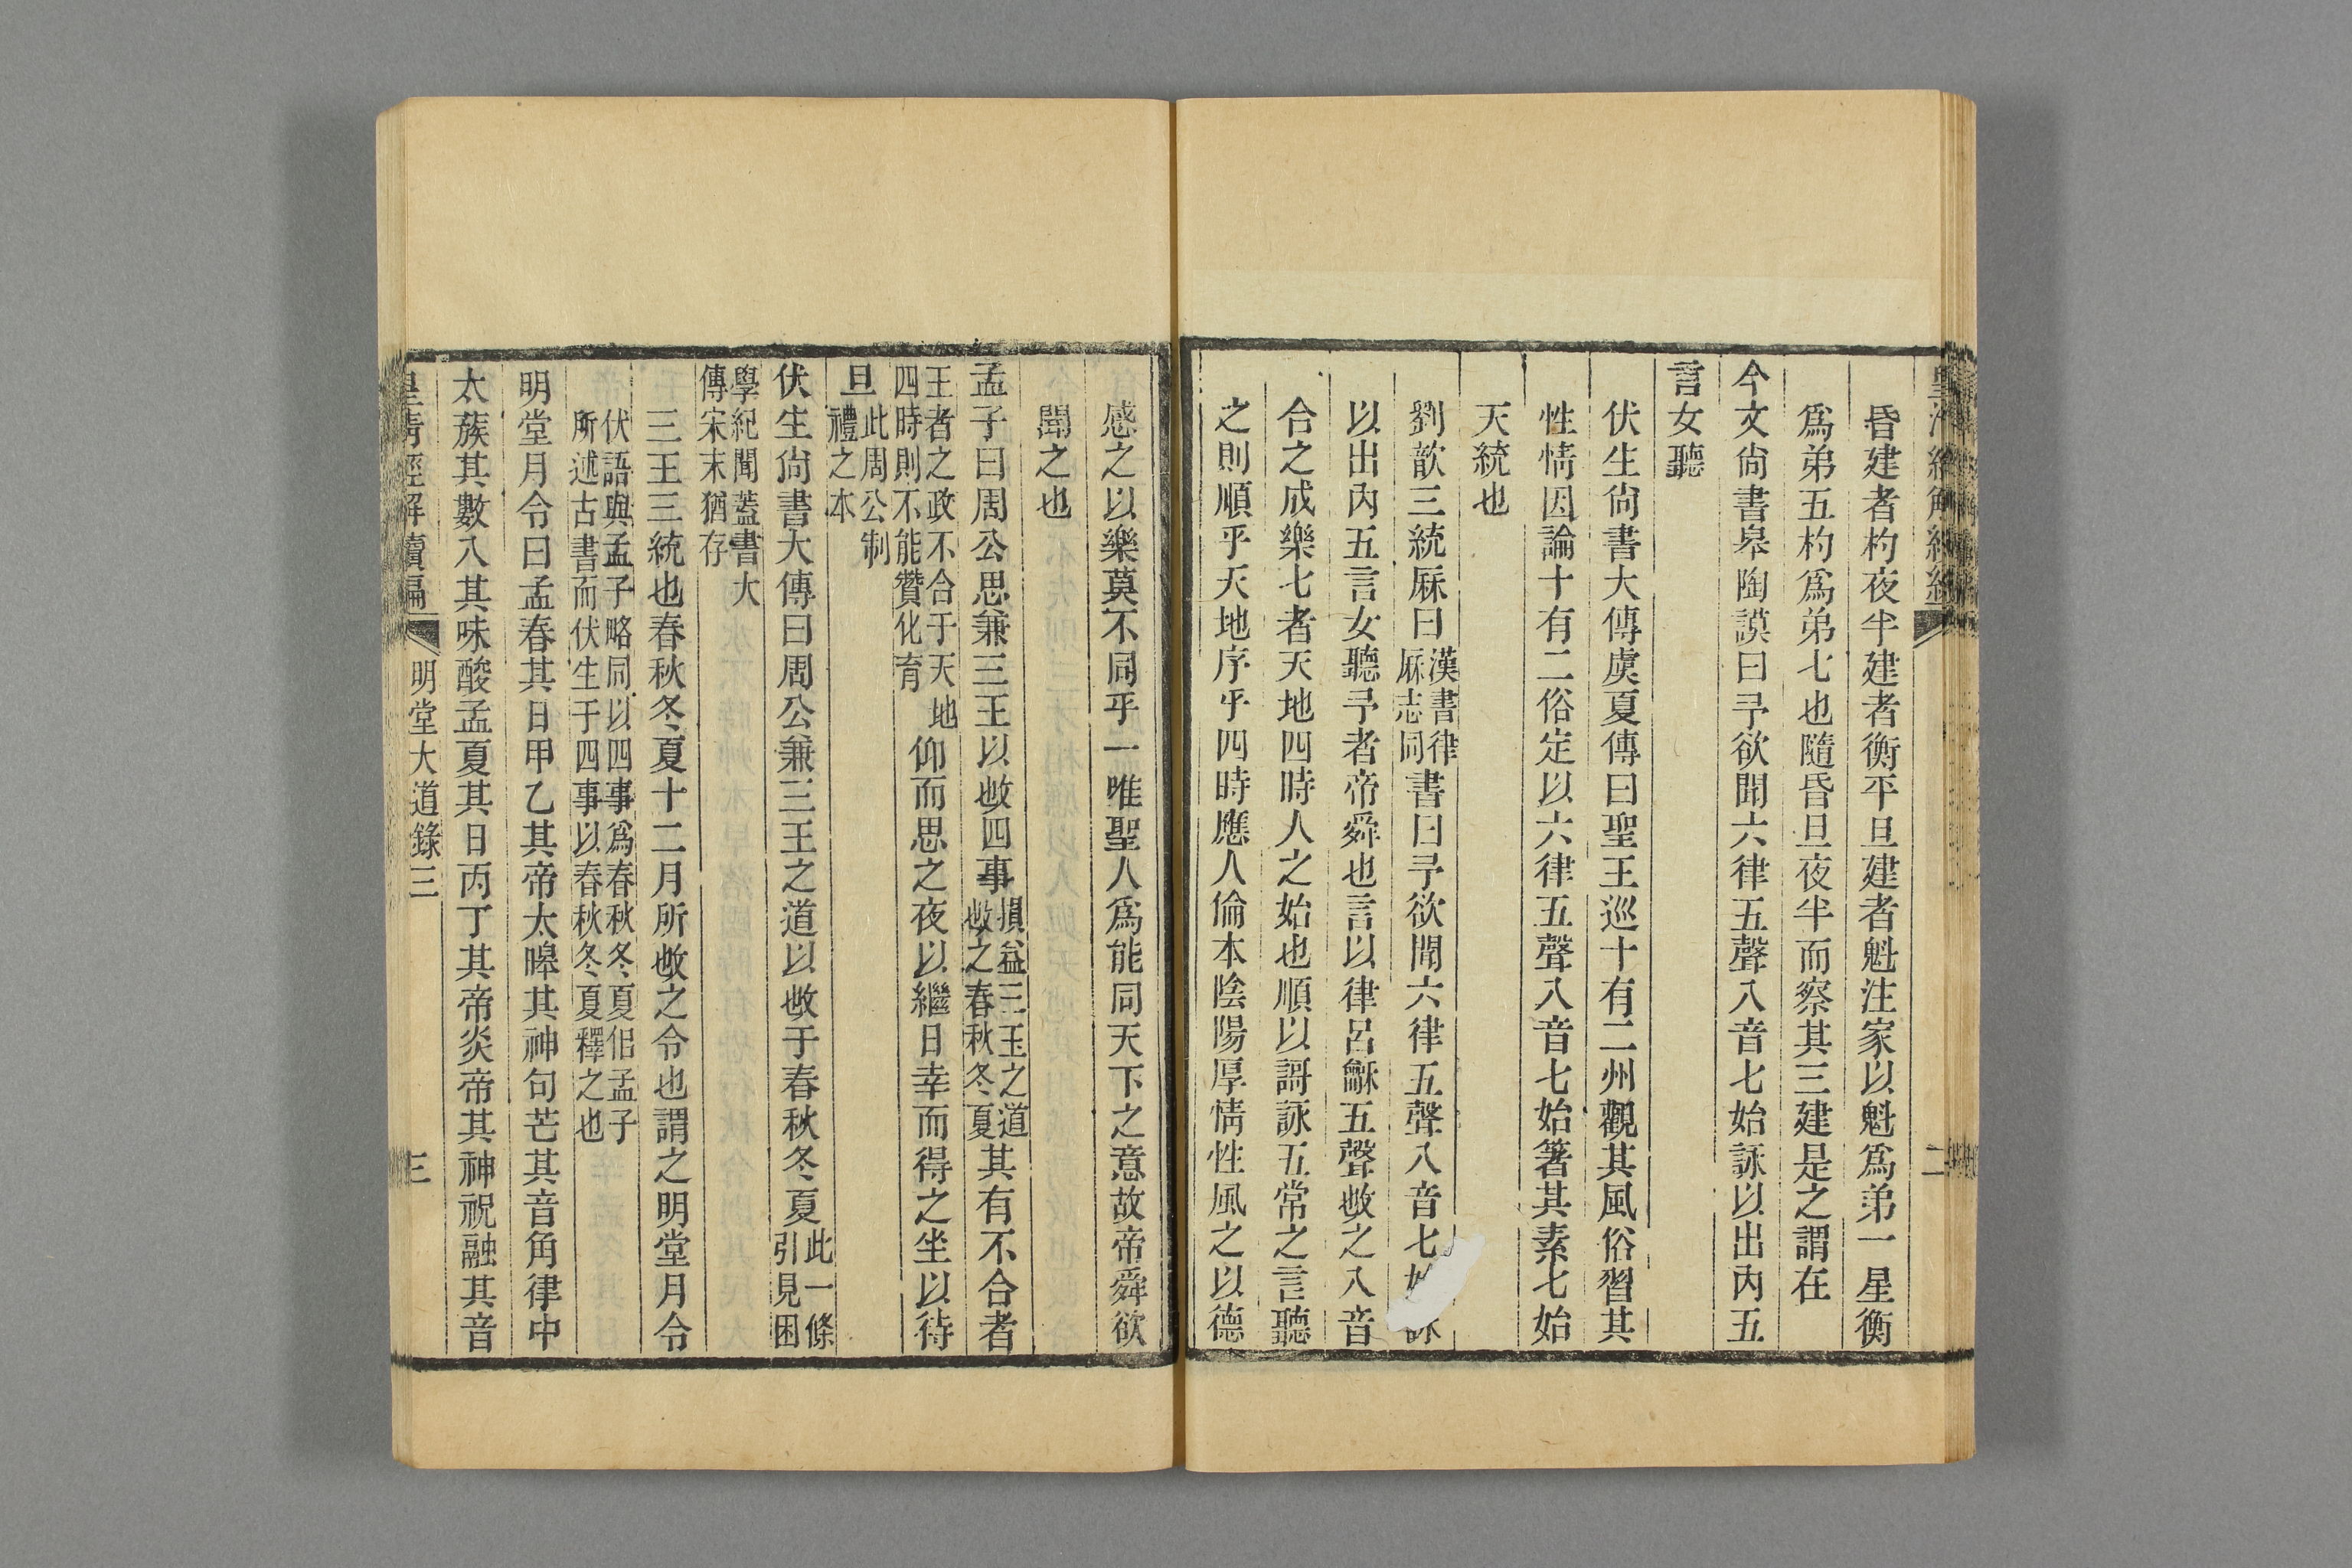 昏建者杓夜半建者衡平旦建者魁注家以魁爲弟一星衡
爲弟五杓爲弟七也隨昏旦夜半而察其三建是之謂在
今文尙書皋陶謨曰予欲聞六律五聲八音七始詠以出內五
言女聽
伏生尙書大傳虞夏傳曰聖王巡十有二州觀其風俗習其
性情因論十有二俗定以六律五聲八音七始箸其素七始
天統也
劉歆三統厤曰漢書律厤志同書曰予欲聞六律五聲八音七始詠
以出內五言女聽予者帝舜也言以律呂龢五聲㪫之八音
合之成樂七者天地四時人之始也順以謌詠五常之言聽
之則順乎天地序乎四時應人倫本陰陽厚情性風之以德
感之以樂莫不同乎一唯聖人爲能同天下之意故帝舜欲
聞之也
孟子曰周公思兼三王以㪫四事損益三王之道㪫之春秋冬夏其有不合者
王者之政不合于天地四時則不能贊化育仰而思之夜以繼日幸而得之坐以待
旦此周公制禮之本
伏生尙書大傳曰周公兼三王之道以㪫于春秋冬夏此一條引見困
學紀聞蓋書大傳宋末猶存
三王三統也春秋冬夏十二月所㪫之令也謂之明堂月令
伏語與孟子略同以四事爲春秋冬夏侣孟子所述古書而伏生于四事以春秋冬夏釋之也
明堂月令曰孟春其日甲乙其帝太皞其神句芒其音角律中
太蔟其數八其味酸孟夏其日丙丁其帝炎帝其神祝融其音
皇淸經解續編
明堂大道錄三
三